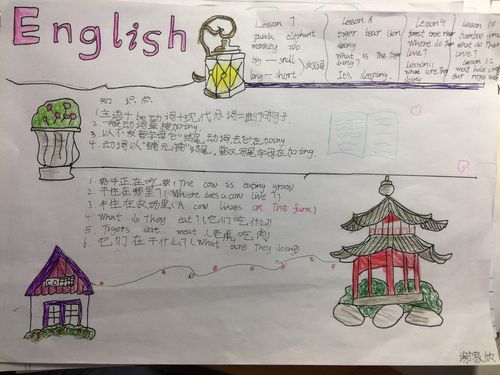 English
Lesson 7
panda elephant
monkey zoo
big — small
long — short
反义词
Lesson 8
tiger bear lion
doing
What is the tiger
doing?
It's sleeping.
Lesson 9
forest tree river
Where do
live?
Lesson 11
what are they
Lesson 10
bamboo
what do
Lesson 12
知识点
1.主语+be动词+现代分词=进行时句子.
2.一般动词直接加ing.
3.以不发音字母"e"结尾,动词去"e"加ing
4.动词以"辅元辅"结尾,要双写尾字母在加ing.
1.奶牛正在吃草!(The cow is eating grass)
2.牛住在哪里?(Where does a cow live?)
3.牛住在农场里.(A cow lives on the farm)
4 What do They eat?(它们吃什么)
5.Tigers eat meat.(老虎吃肉)
6 它们在干什么?(What are They doing)